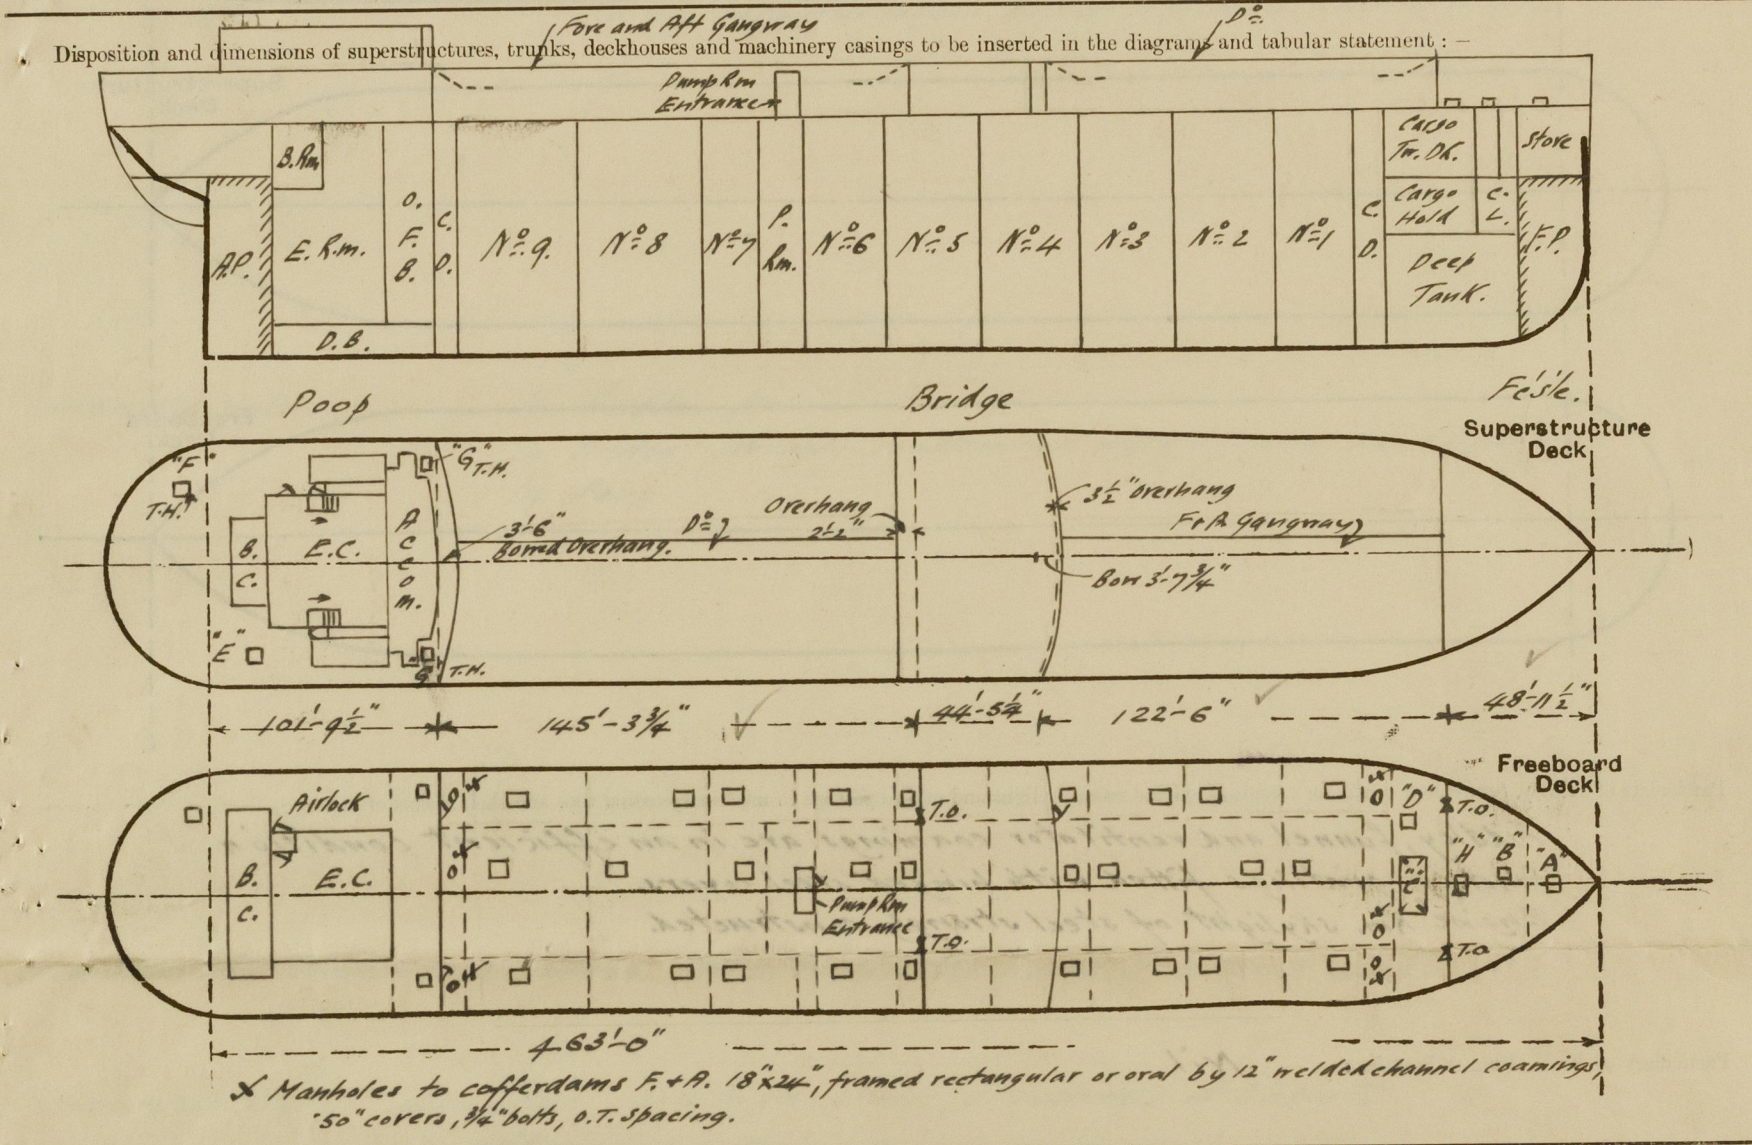 Fore and Aft Gangway
Dº
Disposition and dimensions of superstructures, trunks, deckhouses and machinery casings to be inserted in the diagrams and tabular statement : —
Pump Rm
Entrance
Cargo
Tw. Dk.
Store
B.Rm
O.
F.
B.
C.
D.
A.P.
E.Rm.
Nº 9.
Nº 8
Nº 7
P.
Rm.
Nº 6
Nº 5
Nº 4
Nº 3
Nº 2
Nº 1
C.
D.
Cargo
Hold
C.
L.
F.P.
Deep
Tank.
D.B.
Poop
Bridge
Fc's'le.
Superstructure
Deck
"F"
T.H.
"G"
T.H.
B.
C.
E.C.
A
C
C
O
m.
3'-6"
Bowed Overhang.
Dº
Overhang
2'-2"
3½" Overhang
F & A Gangway
Bow 3'-7¾"
"E"
"G"
T.H.
101'-9½"
145'-3¾"
44'-5¼"
122'-6"
48'-11½"
Freeboard
Deck
Airlock
B.
C.
E.C.
T.O.
T.O.
Pump Rm
Entrance
"D"
T.O.
"C"
"H"
"B"
"A"
T.O
463'-0"
X Manholes to cofferdams F. & A. 18"x24", framed rectangular or oval by 12" welded channel coamings,
·50" covers, ¾" bolts, O.T. spacing.